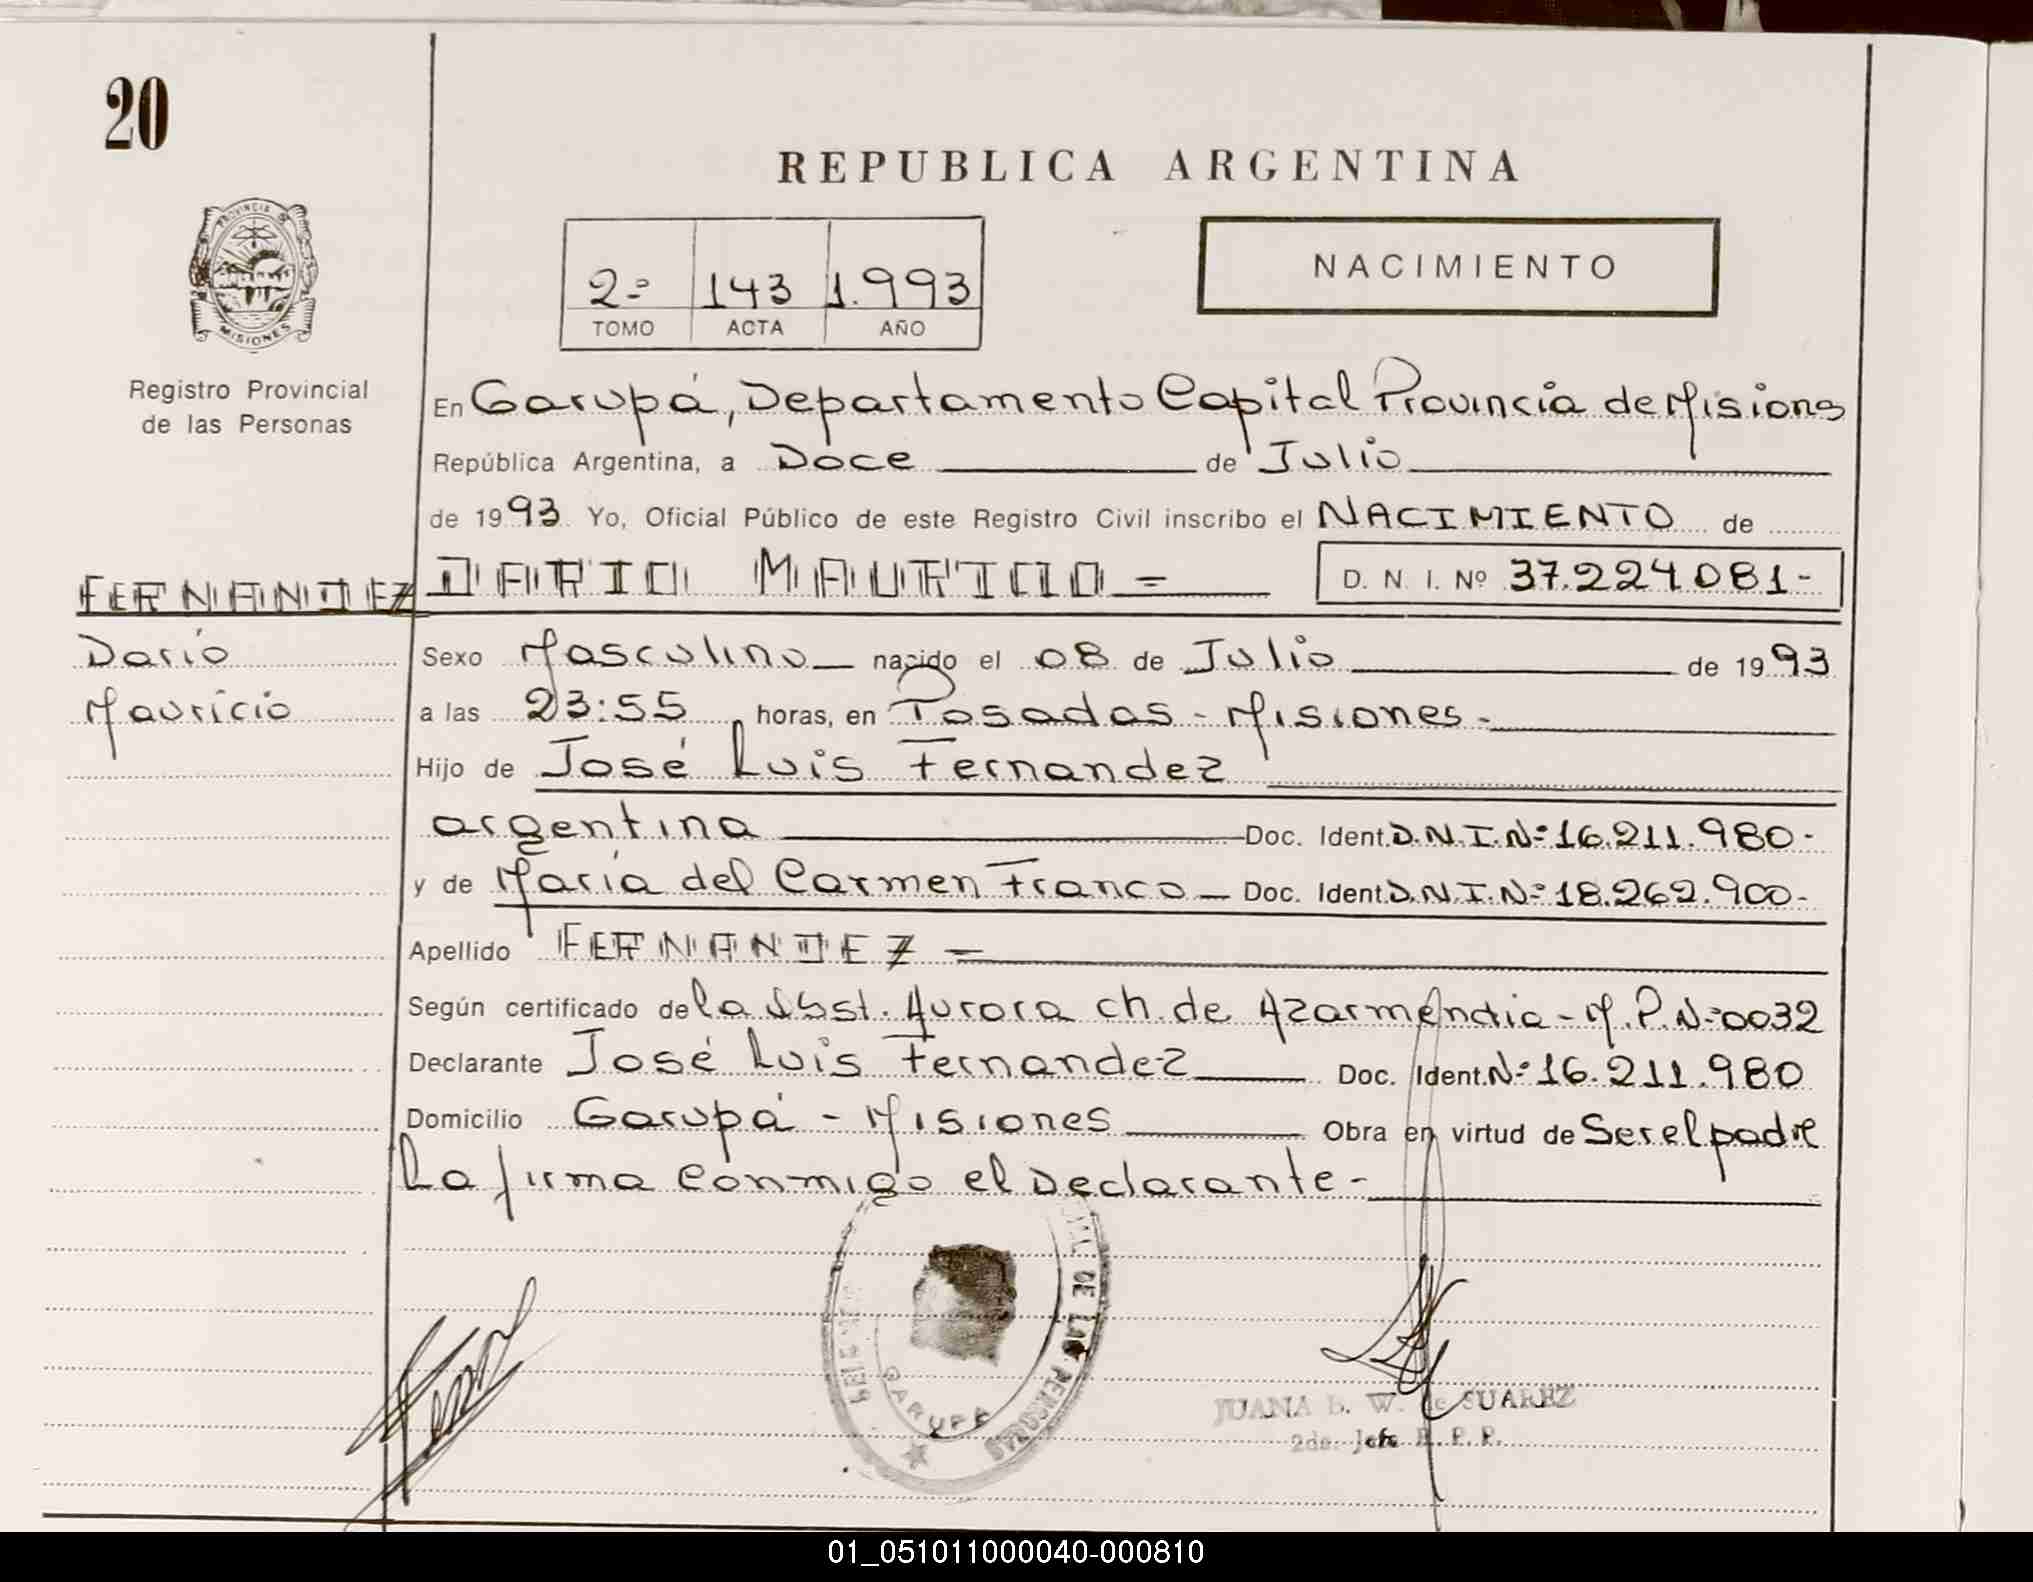 20
REPUBLICA ARGENTINA
PROVINCIA DE
MISIONES
2º 143 1.993
TOMO ACTA AÑO
NACIMIENTO
Registro Provincial
de las Personas
En Garupá, Departamento Capital Provincia de Misiones
República Argentina, a Doce de Julio
de 1993 Yo, Oficial Público de este Registro Civil inscribo el NACIMIENTO de
FERNANDEZ DARIO MAURICIO = D. N. I. Nº 37.224.081-
Dario
Mauricio
Sexo Masculino nacido el 08 de Julio de 1993
a las 23:55 horas, en Posadas - Misiones -
Hijo de José Luis Fernandez
argentina Doc. Ident. D.N.I.Nº 16.211.980-
y de María del Carmen Franco Doc. Ident. D.N.I.Nº 18.262.900-
Apellido FERNANDEZ =
Según certificado de la Obst. Aurora ch. de Azarmendia - M.P.Nº 0032
Declarante José Luis Fernandez Doc. Ident. Nº 16.211.980
Domicilio Garupá - Misiones Obra en virtud de Ser el padre
La firma conmigo el Declarante -
DE LAS PERSONAS
GARUPA
JUANA B. W. de SUAREZ
2da. Jefe R. P. P.
01_051011000040-000810